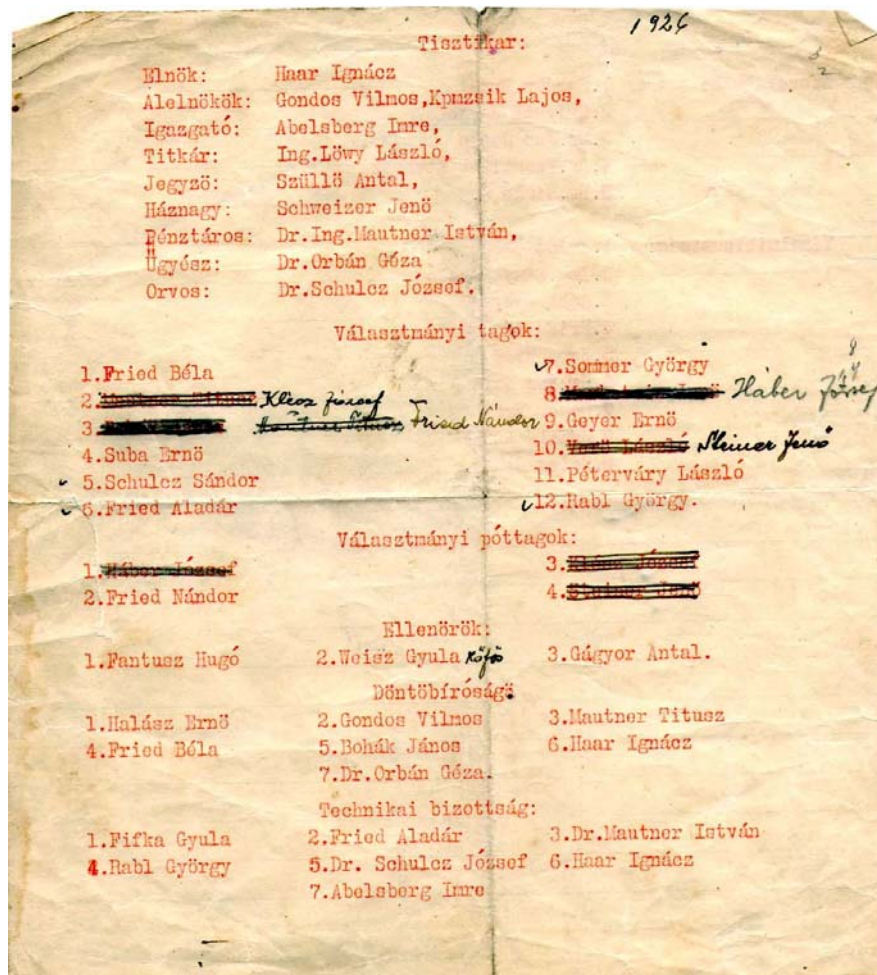 1926
Tisztikar:
Elnök: Haar Ignácz
Alelnökök: Gondos Vilmos,Kpmzsik Lajos,
Igazgató: Abelsberg Imre,
Titkár: Ing.Löwy László,
Jegyzö: Szüllö Antal,
Háznagy: Schweizer Jenö
Pénztáros: Dr.Ing.Mautner István,
Ügyész: Dr.Orbán Géza
Orvos: Dr.Schulcz József.
Választmányi tagok:
1.Fried Béla
2. József
3. Mautner Titusz Fried Nándor
4.Suba Ernö
5.Schulcz Sándor
6.Fried Aladár
7.Sommer György
8. Háber József
9.Geyer Ernö
10. László Steiner Jenő
11.Péterváry László
12.Rabl György.
Választmányi póttagok:
1.Háber József
2.Fried Nándor
3. József
4.Steiner Jenö
Ellenörök:
1.Fantusz Hugó 2.Weisz Gyula 3.Gágyor Antal.
Döntöbíróság
1.Halász Ernö 2.Gondos Vilmos 3.Mautner Titusz
4.Fried Béla 5.Bohák János 6.Haar Ignácz
7.Dr.Orbán Géza.
Technikai bizottság:
1.Fifka Gyula 2.Fried Aladár 3.Dr.Mautner István
4.Rabl György 5.Dr. Schulcz József 6.Haar Ignácz
7.Abelsberg Imre